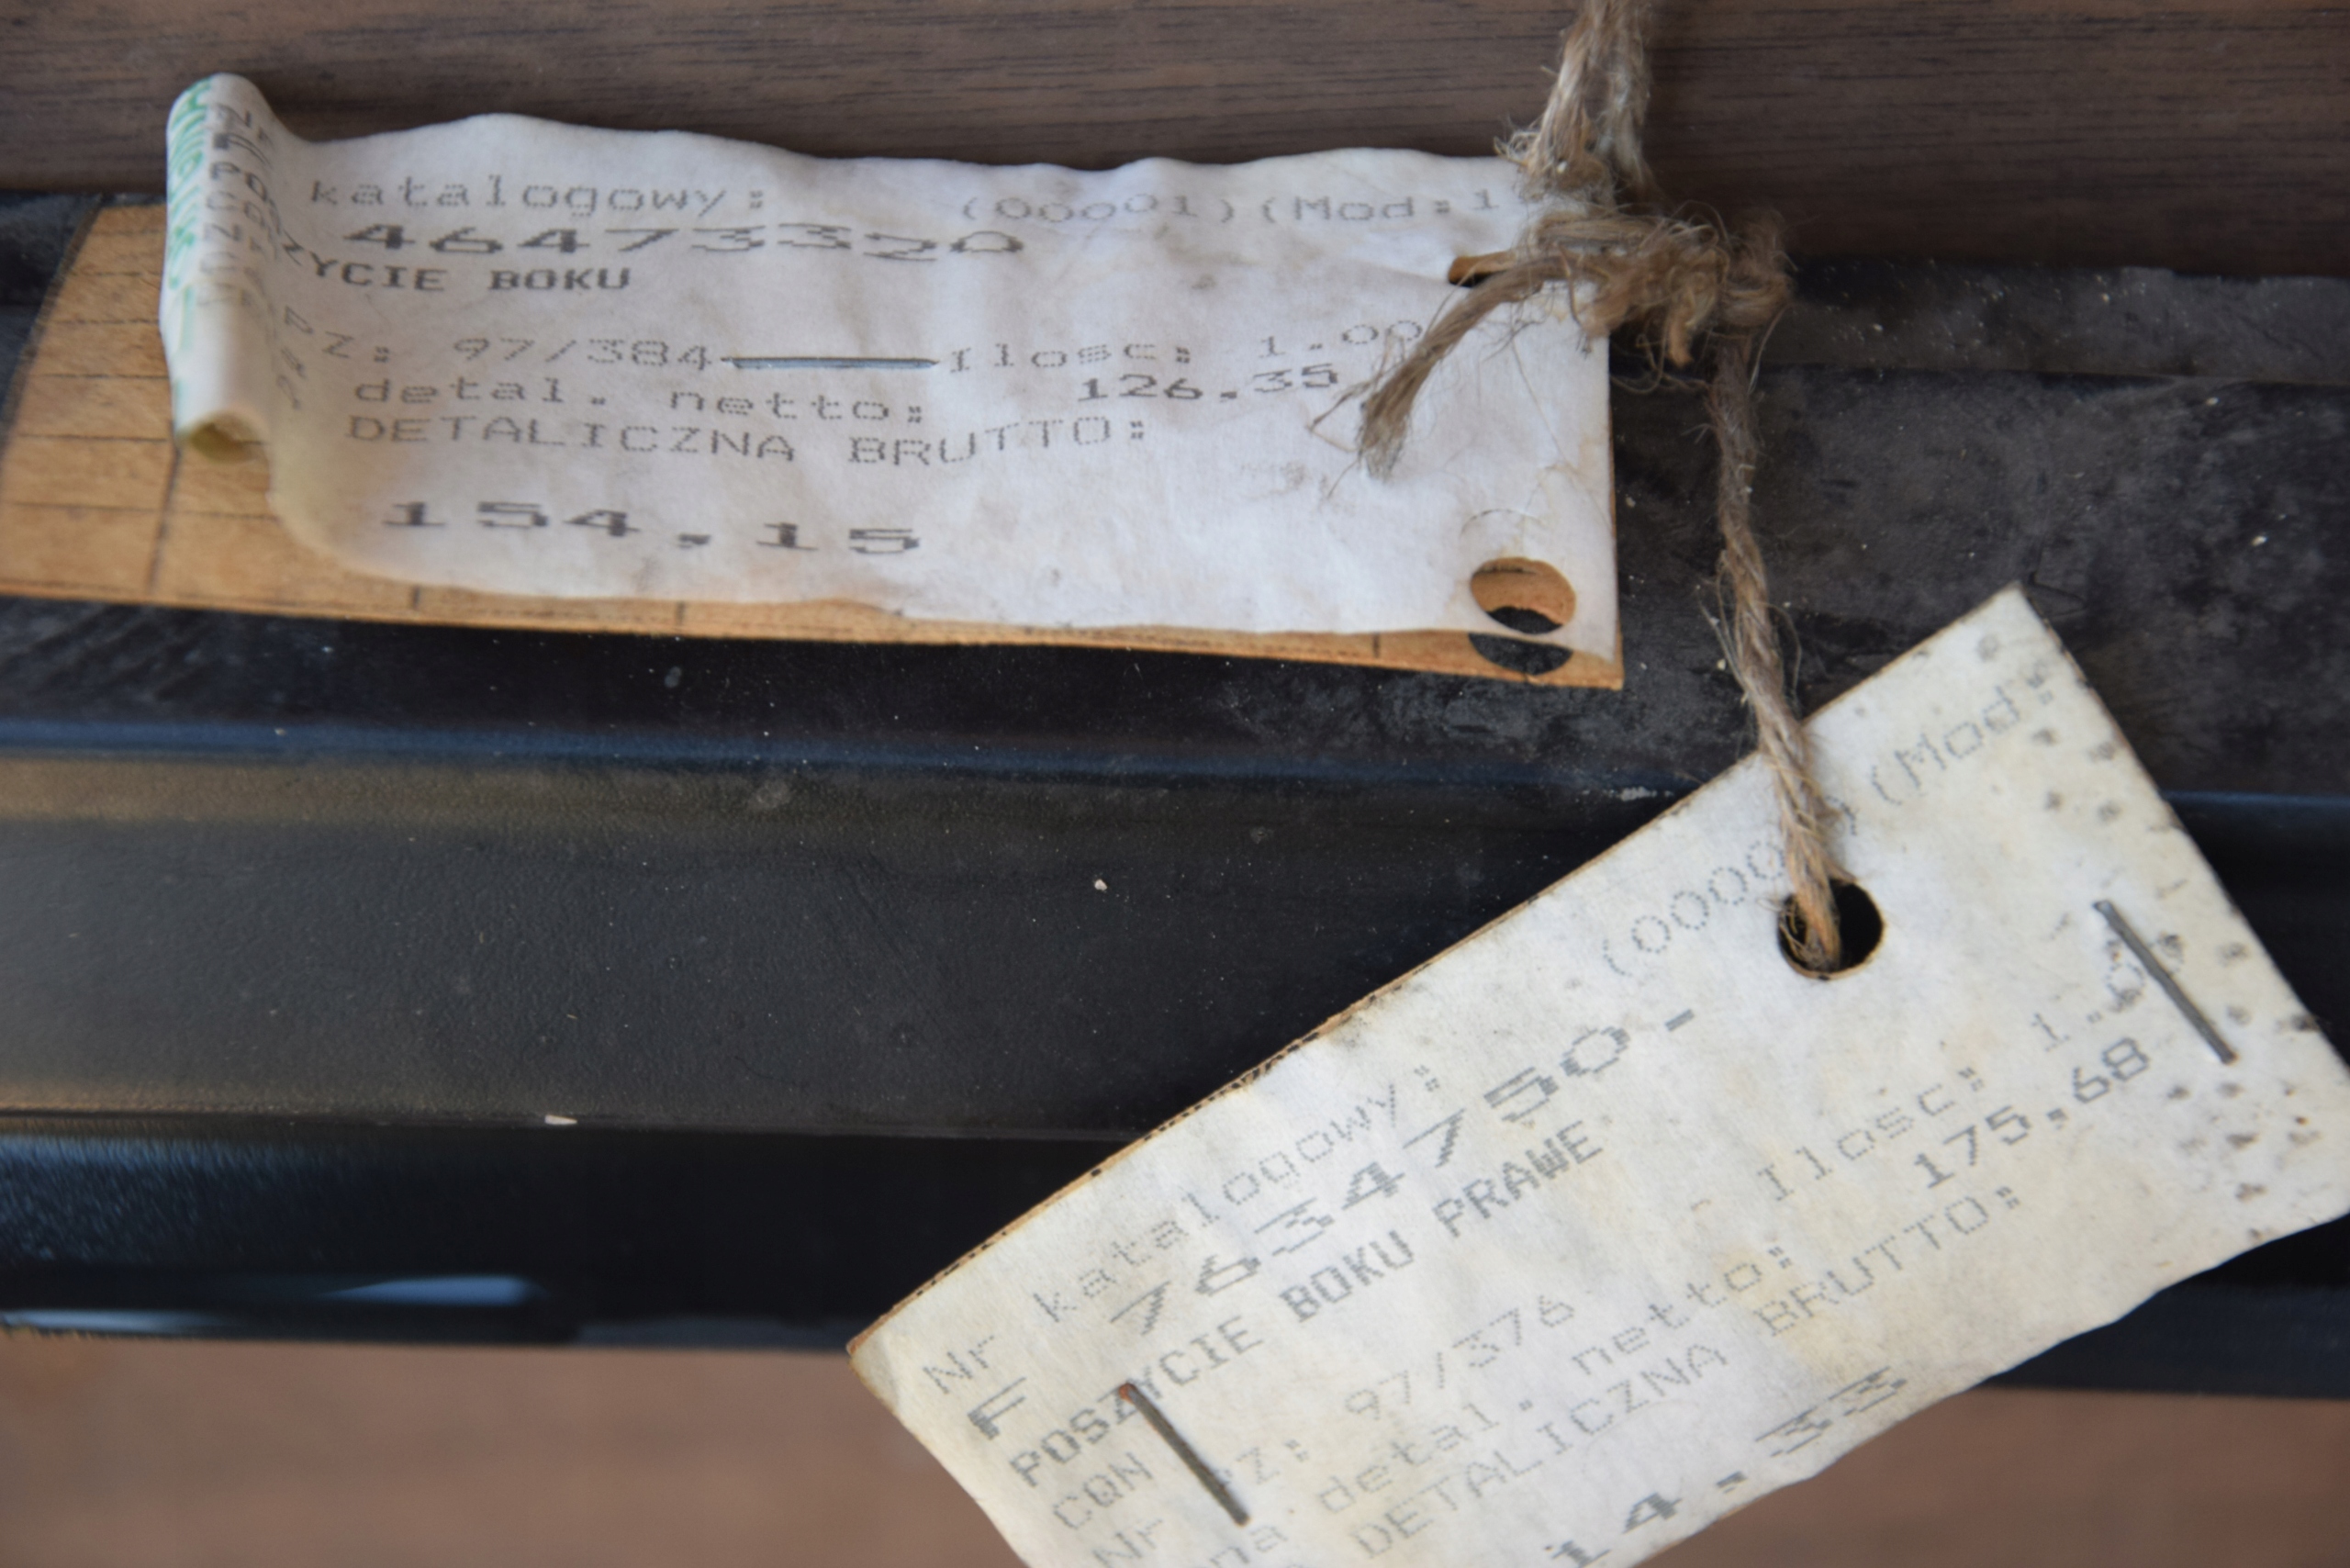 katalogowy: (00001)(Mod:1
46473320
POSZYCIE BOKU
PZ: 97/384 Ilosc: 1.00
detal. netto: 126,35
DETALICZNA BRUTTO:
154,15
Nr katalogowy: (0000 ) (Mod:
F 7634750-
POSZYCIE BOKU PRAWE
CQN - Ilosc: 1.0
Nr PZ: 97/376 175,68
na detal. netto:
DETALICZNA BRUTTO:
14.33